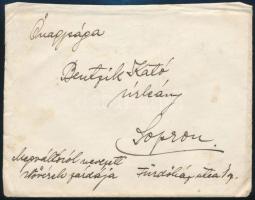 Őnagysága
Bentzik Kató
úrleány
Sopron.
Megváltóról nevezett
nővérek zárdája Fürdőház utca 19.